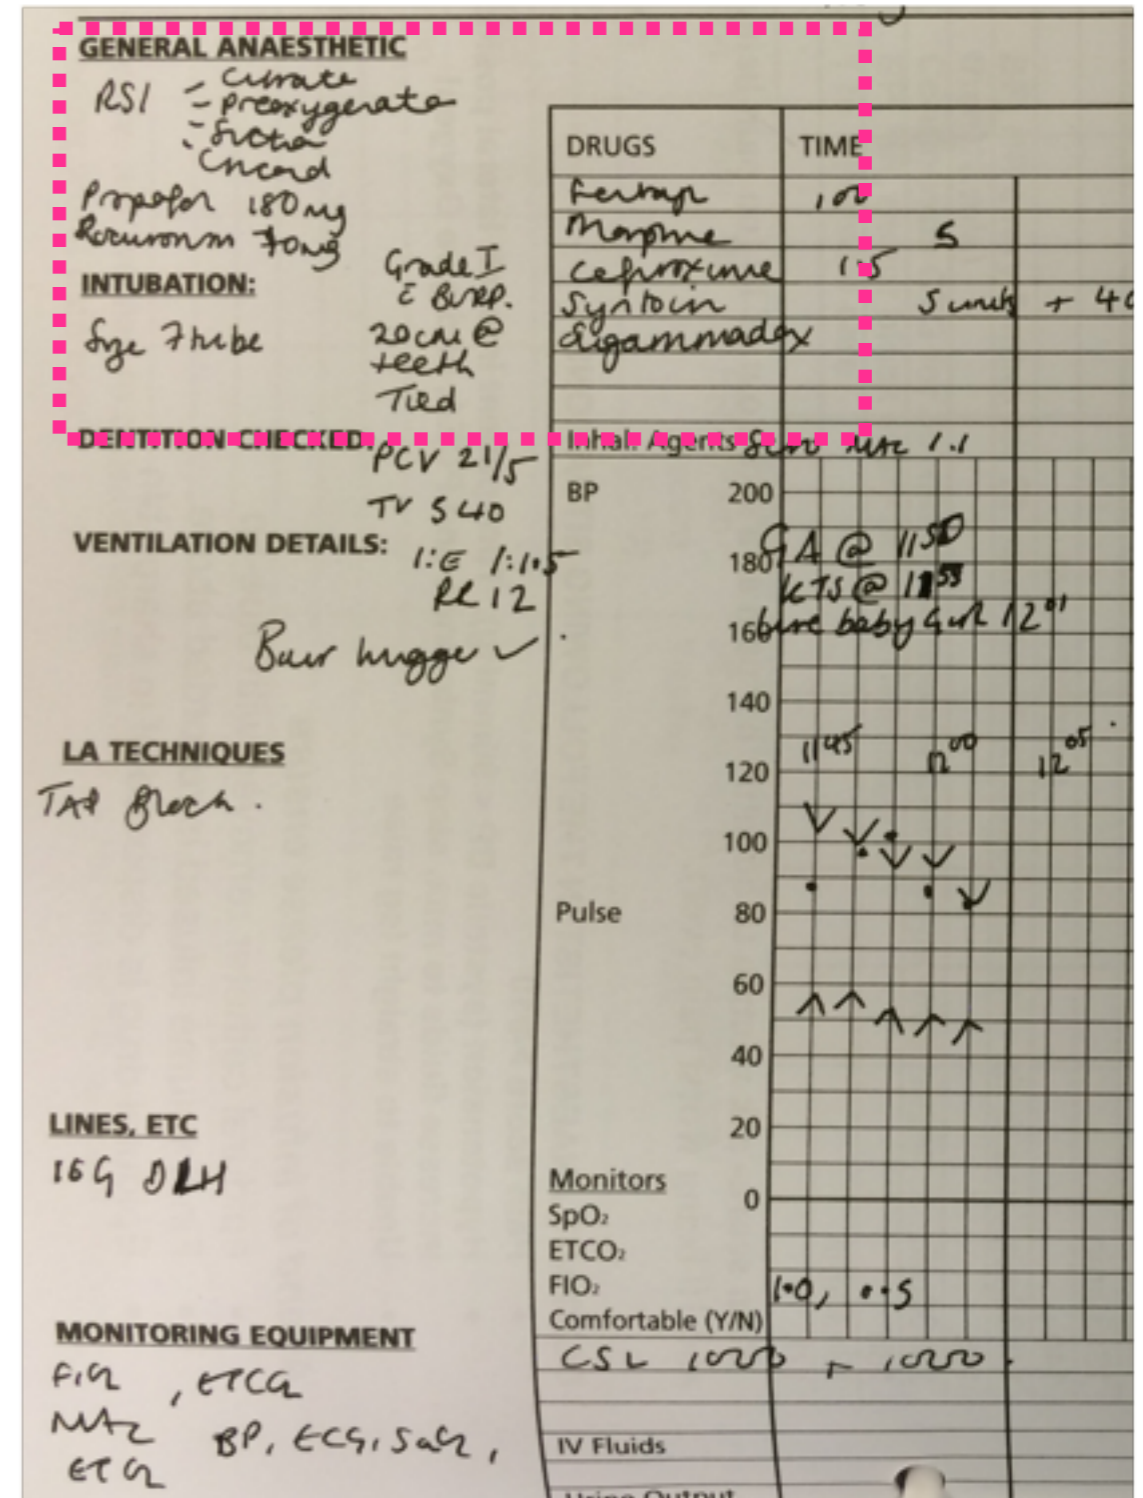 GENERAL ANAESTHETIC
RSI - Citrate
- Preoxygenate
- Suction
Cricoid
Propofol 180mg
Rocuronium 70mg
INTUBATION:
Grade I
c BURP.
Size 7 tube
20cm @
teeth
Tied
DENTITION CHECKED:
PCV 21/5
TV 540
VENTILATION DETAILS:
I:E 1:1.5
RR 12
Bair hugger ✓
LA TECHNIQUES
TAP Block.
LINES, ETC
16G DLH
MONITORING EQUIPMENT
FiO2, ETCO2
MAC BP, ECG, SaO2,
ETO2
DRUGS TIME
Fentanyl 100
Morphine 5
Cefuroxime 1.5
Syntocin 5 units + 40
Sugammadex
Inhal. Agents Sevo MAC 1.1
BP 200
180 GA @ 1150
KTS @ 1155
160 live baby Girl 1201
140
1145 1200 1205
120
100
Pulse 80
60
40
20
Monitors 0
SpO2
ETCO2
FIO2 1.0, 0.5
Comfortable (Y/N)
CSL 1000 + 1000
IV Fluids
Urine Output